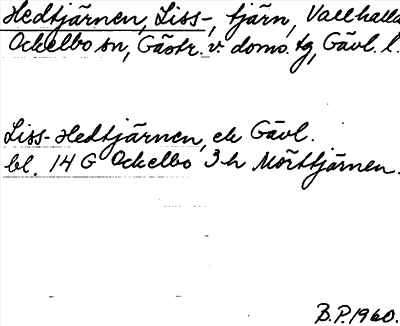 Hedtjärnen, Liss-, tjärn, Vallhalla
Ockelbo sn, Gästr. v. doms. tg, Gävl. l.
Liss-Hedtjärnen, ek Gävl.
bl. 14 G Ockelbo 3 h Mörttjärnen.
B.P. 1960.